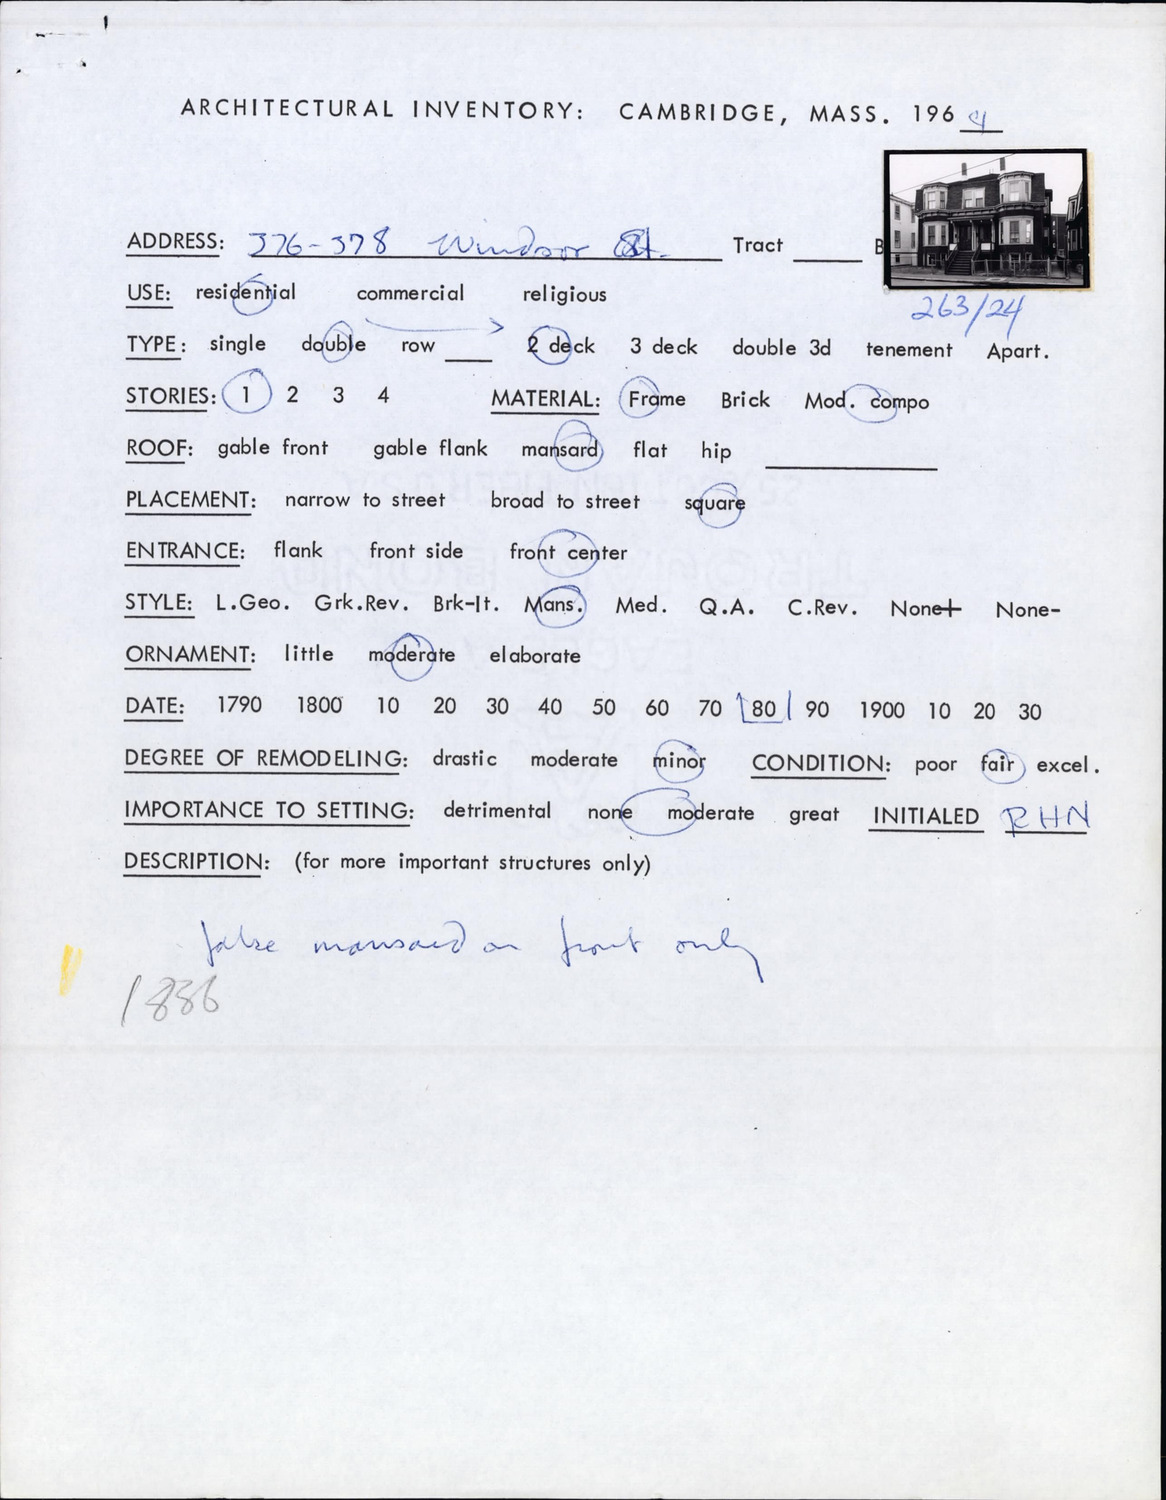 ARCHITECTURAL INVENTORY: CAMBRIDGE, MASS. 1964
ADDRESS: 376-378 Windsor St. Tract ____ B
263/24
USE: residential commercial religious
TYPE: single double row ____ 2 deck 3 deck double 3d tenement Apart.
STORIES: 1 2 3 4 MATERIAL: Frame Brick Mod. compo
ROOF: gable front gable flank mansard flat hip ____
PLACEMENT: narrow to street broad to street square
ENTRANCE: flank front side front center
STYLE: L.Geo. Grk.Rev. Brk-It. Mans. Med. Q.A. C.Rev. None+ None-
ORNAMENT: little moderate elaborate
DATE: 1790 1800 10 20 30 40 50 60 70 80 90 1900 10 20 30
DEGREE OF REMODELING: drastic moderate minor CONDITION: poor fair excel.
IMPORTANCE TO SETTING: detrimental none moderate great INITIALED RHN
DESCRIPTION: (for more important structures only)
false mansard on front only
1886